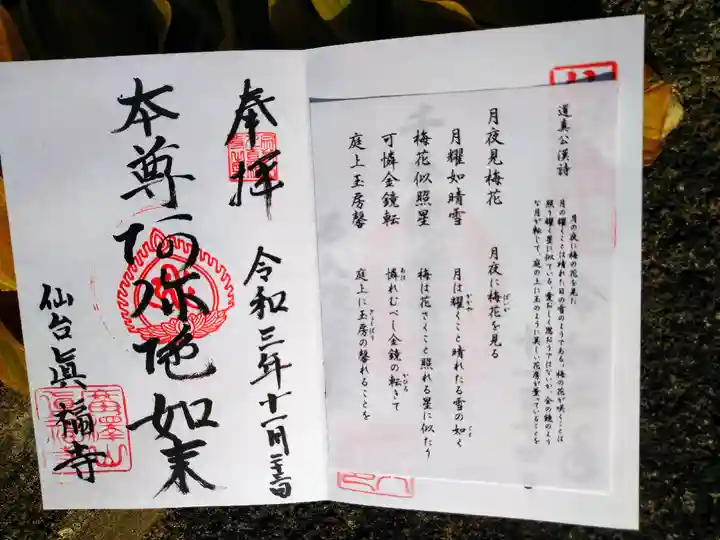 道真公漢詩
月の夜に梅の花を見た
月の耀くことは晴れた日の雪のようである、梅の花が咲くことは
照り耀く星に似ている、愛おしく思おうではないか、金の鏡のよう
な月が転して、庭の上に玉のように美しい花房が薫っていることを
月夜見梅花
月夜に梅花を見る
ばいか
月耀如晴雪
月は耀くこと晴れたる雪の如く
かがや
ごと
梅花似照星
梅は花さくこと照れる星に似たり
可憐金鏡転
憐れむべし金鏡の転きて
あは
かひろ
庭上玉房馨
庭上に玉房の馨れることを
奉拝
令和三年十一月
本尊阿弥陀如来
仙台眞福寺